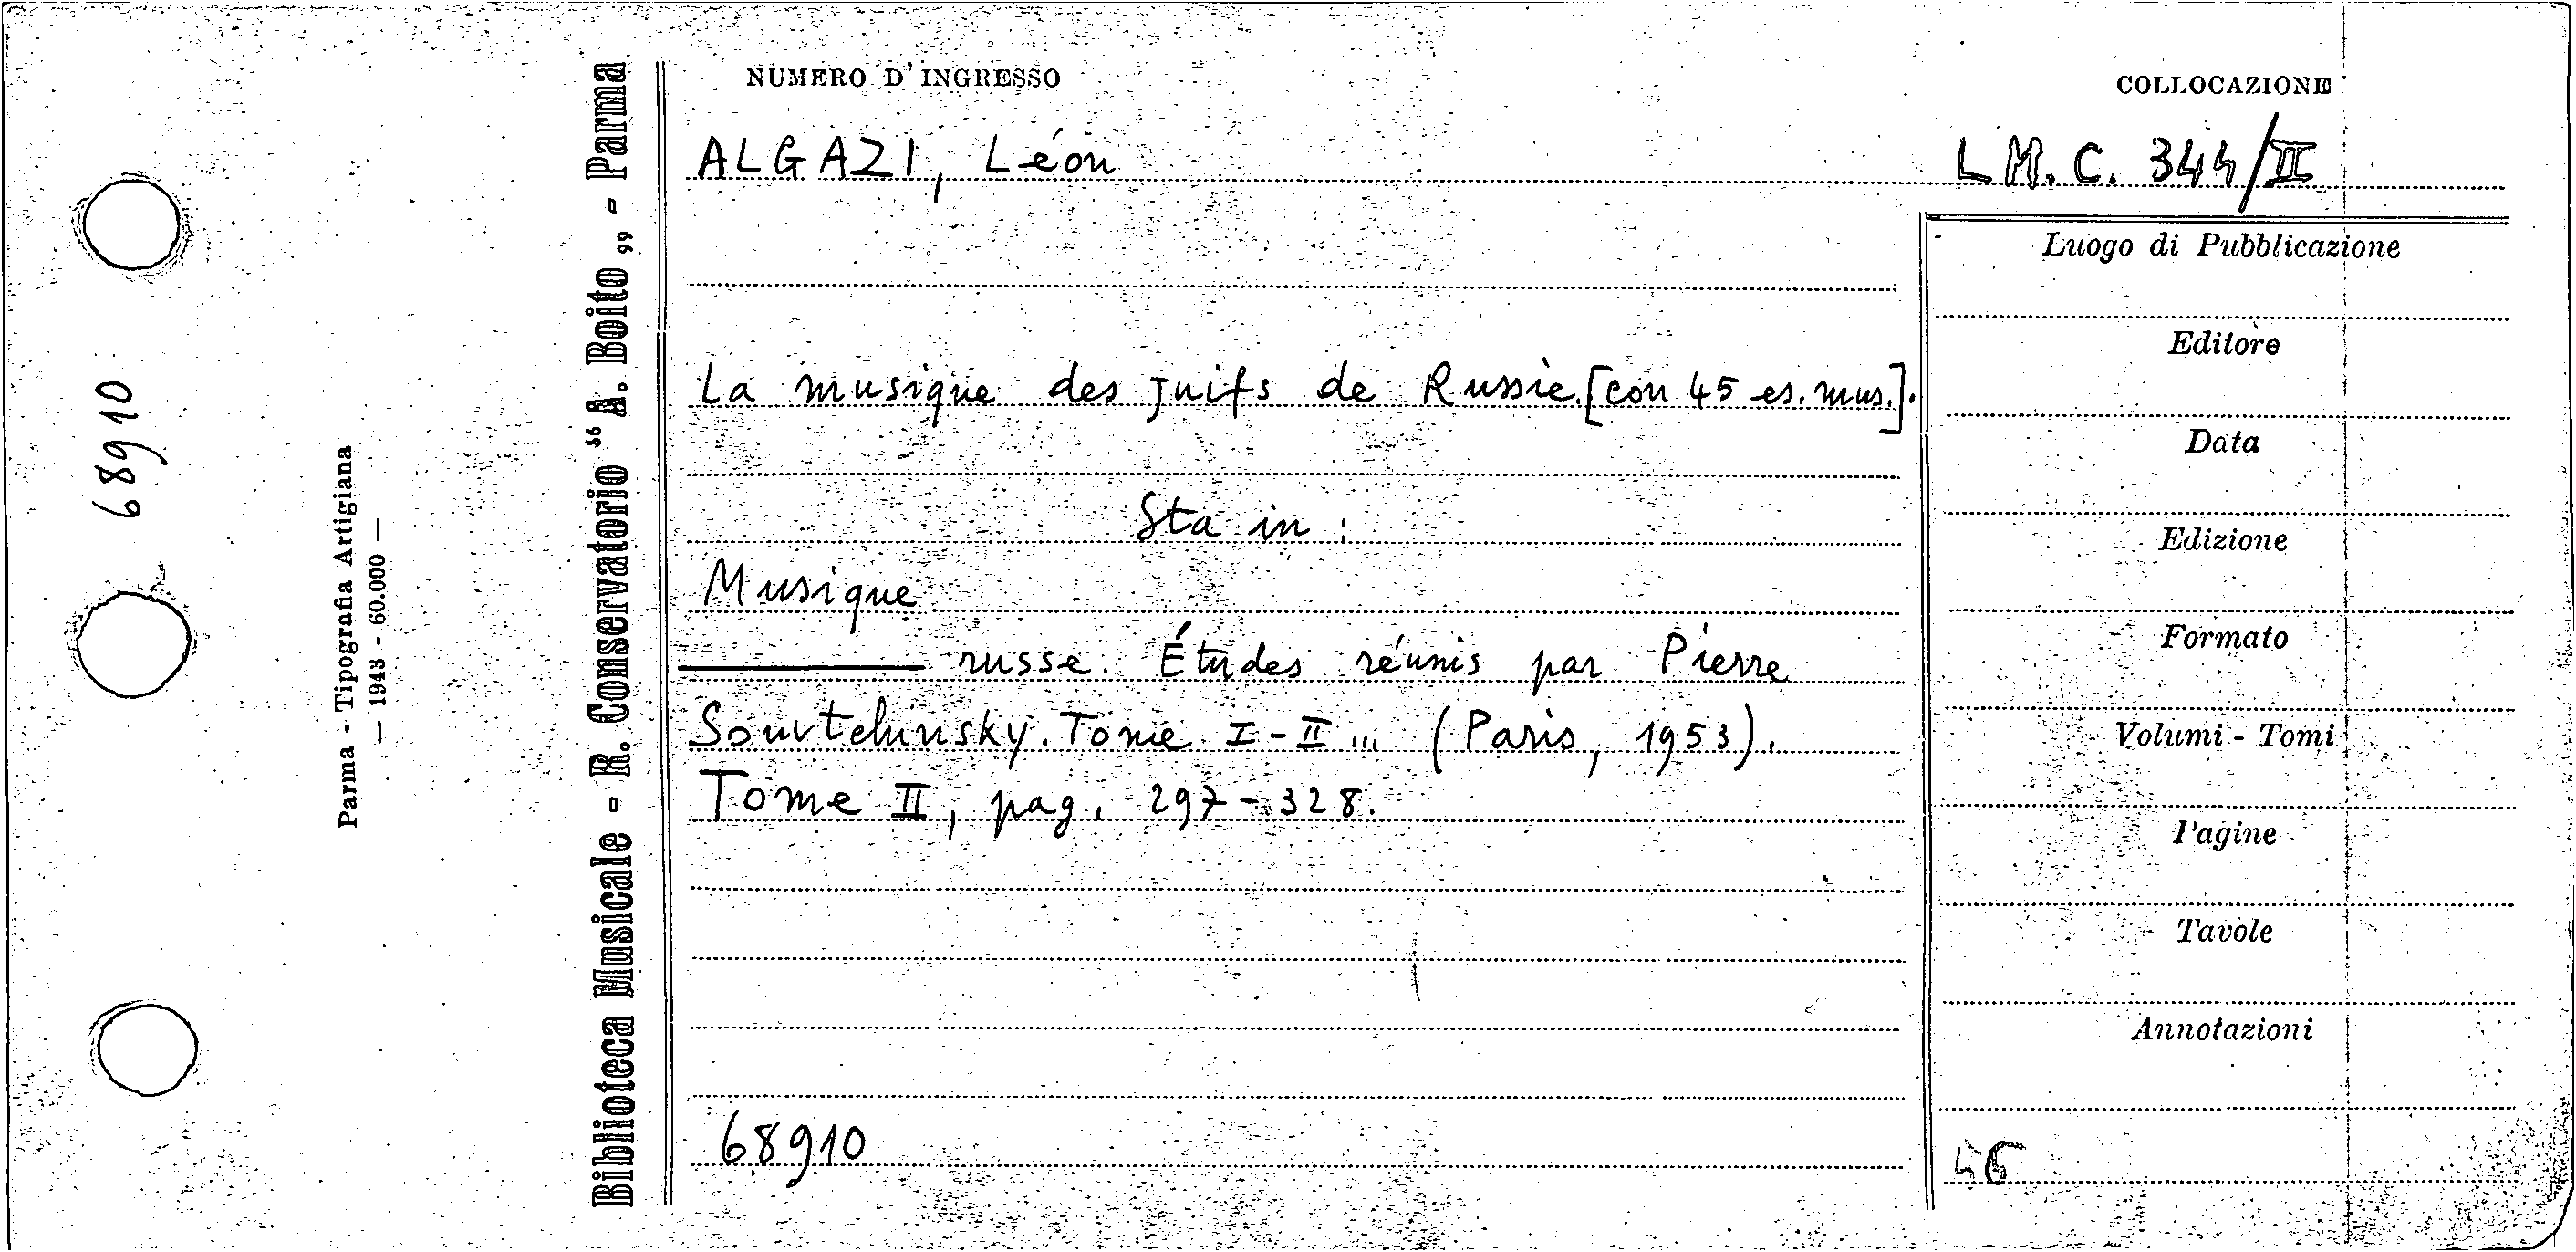 68910
Parma - Tipografia Artigiana
— 1943 - 60.000 —
Biblioteca Musicale - R. Conservatorio “A. Boito„ - Parma
NUMERO D'INGRESSO
COLLOCAZIONE
ALGAZI, Léon
L M. C. 344/II
La musique des juifs de Russie. [con 45 es. mus.].
Sta in :
Musique
——— russe. Études réunis par Pierre
Souvtchinsky. Tome I-II ... (Paris, 1953).
Tome II, pag. 297-328.
68910
Luogo di Pubblicazione
Editore
Data
Edizione
Formato
Volumi - Tomi
Pagine
Tavole
Annotazioni